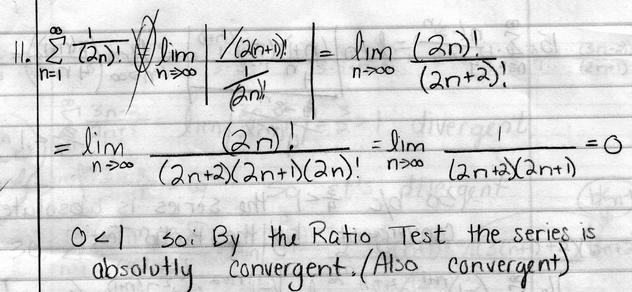 11. ∞ Σ n=1 1/(2n)! = lim n→∞ | 1/(2(n+1))! / 1/(2n)! | = lim n→∞ (2n)! / (2n+2)!
= lim n→∞ (2n)! / (2n+2)(2n+1)(2n)! = lim n→∞ 1 / (2n+2)(2n+1) = 0
0<1 so: By the Ratio Test the series is
absolutly convergent. (Also convergent)